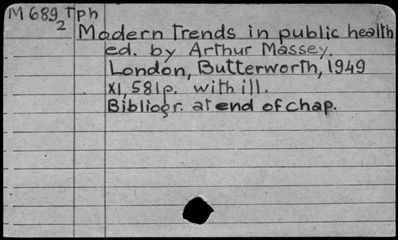 M 689 Tph
2
Modern trends in public health
ed. by Arthur Massey.
London, Butterworth, 1949
XI, 581p. with ill.
Bibliogr. at end of chap.